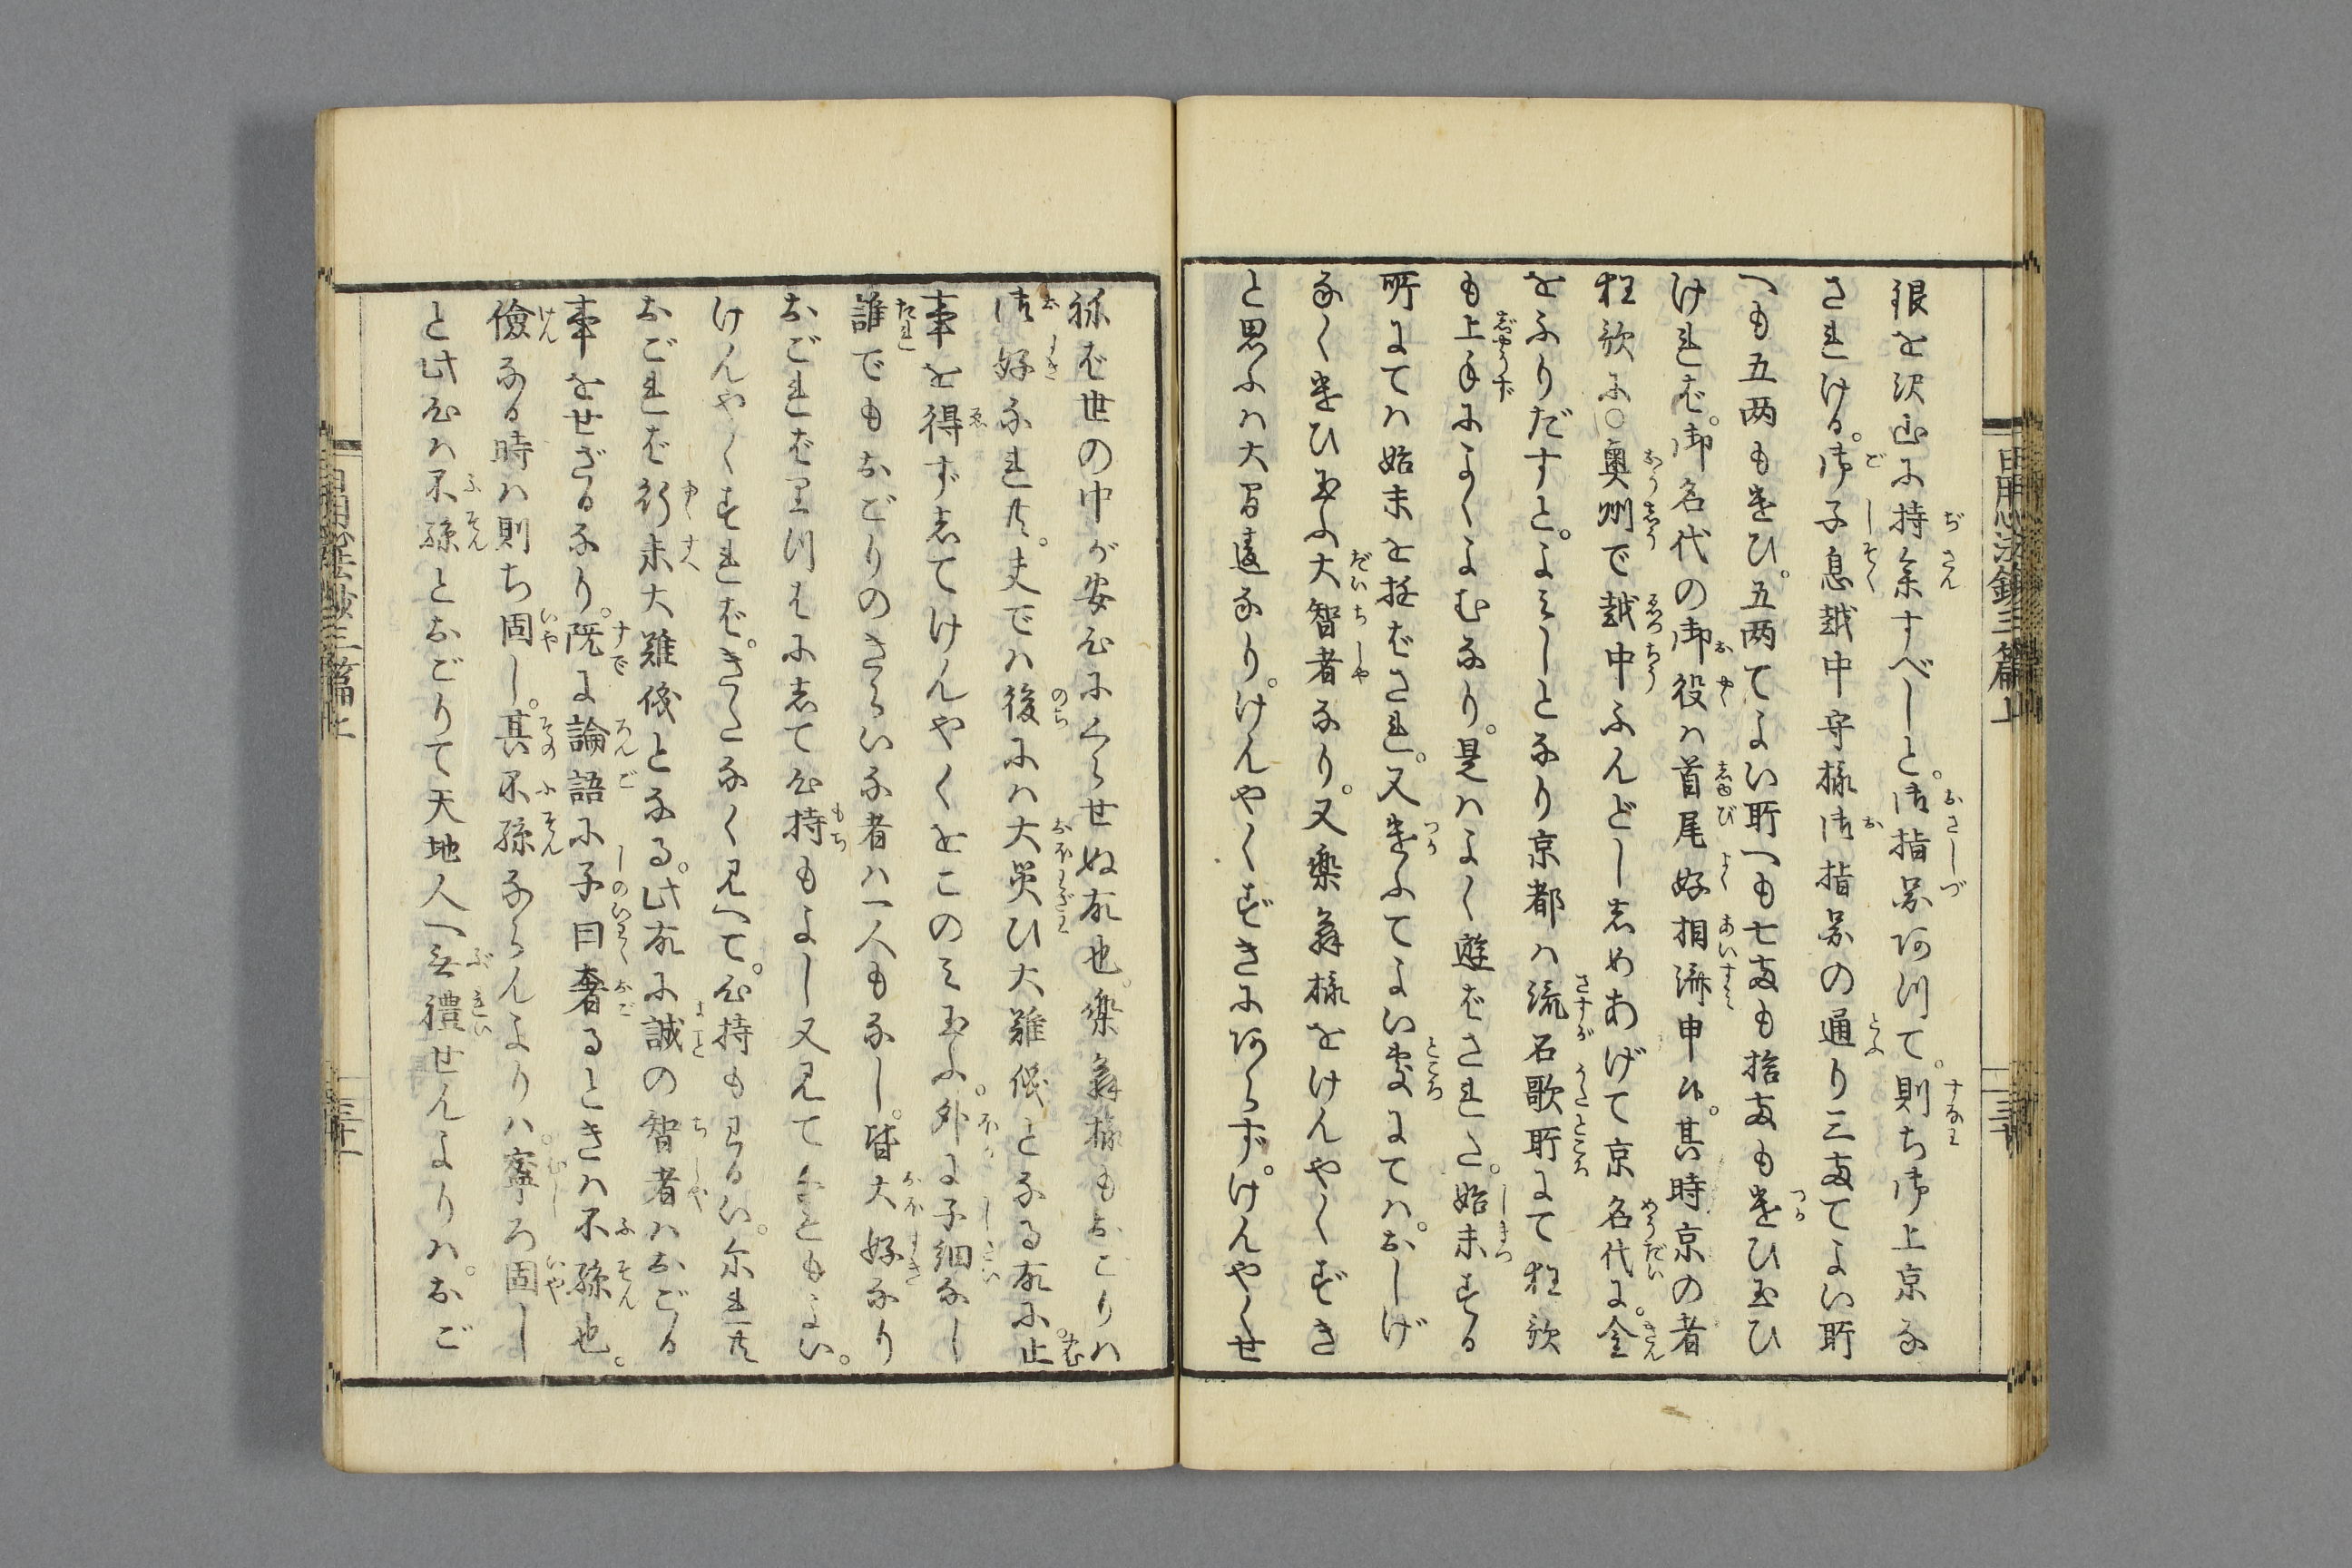 銀を沢山に持参すべしと。御指図何って。則ち御上京な
されける。御子息越中守様御指図の通り三両てよい所
へも五両も遣ひ。五両てよい所へも七両も拾両も遣ひ玉ひ
ければ。御名代の御役ハ首尾好相済申候。其時京の者
狂歌に〇奥州で越中ふんどししめあげて京名代に。金
をふりだすと。よみしとなり京都ハ流石歌所にて狂歌
も上手によくよむなり。是ハよく遊ばされた。始末する
所にてハ始末を遊ばされ。又遣ふてよい処にてハ。おしげ
なく遣ひ玉ふ大智者なり。又楽翁様をけんやくずき
と思ふハ大間違なり。けんやくずきにあらず。けんやくせ
ねば世の中が安心にくらせぬ故也。楽翁様もおごりハ
御好なれ共。夫でハ後にハ大災ひ大難儀となる故に。止
事を得ずしてけんやくをこのみ玉ふ。外に子細なし
誰でもおごりのきらいな者ハ一人もなし。皆大好なり
おごれば里つはにして心持もよし又見て和ともよい。
けんやくすれば。きたなく見へて。心持もわるい。尓れ共
おごれば行末大難儀となる。此故に誠の智者ハおごる
事をせざるなり。既に論語に子曰奢るときハ不孫也。
儉なる時ハ則ち固し。其不孫ならんよりハ。寧ろ固し
と此心ハ不孫とおごりて天地人へ無禮せんよりハ。おご
日用心法鈔三篇上